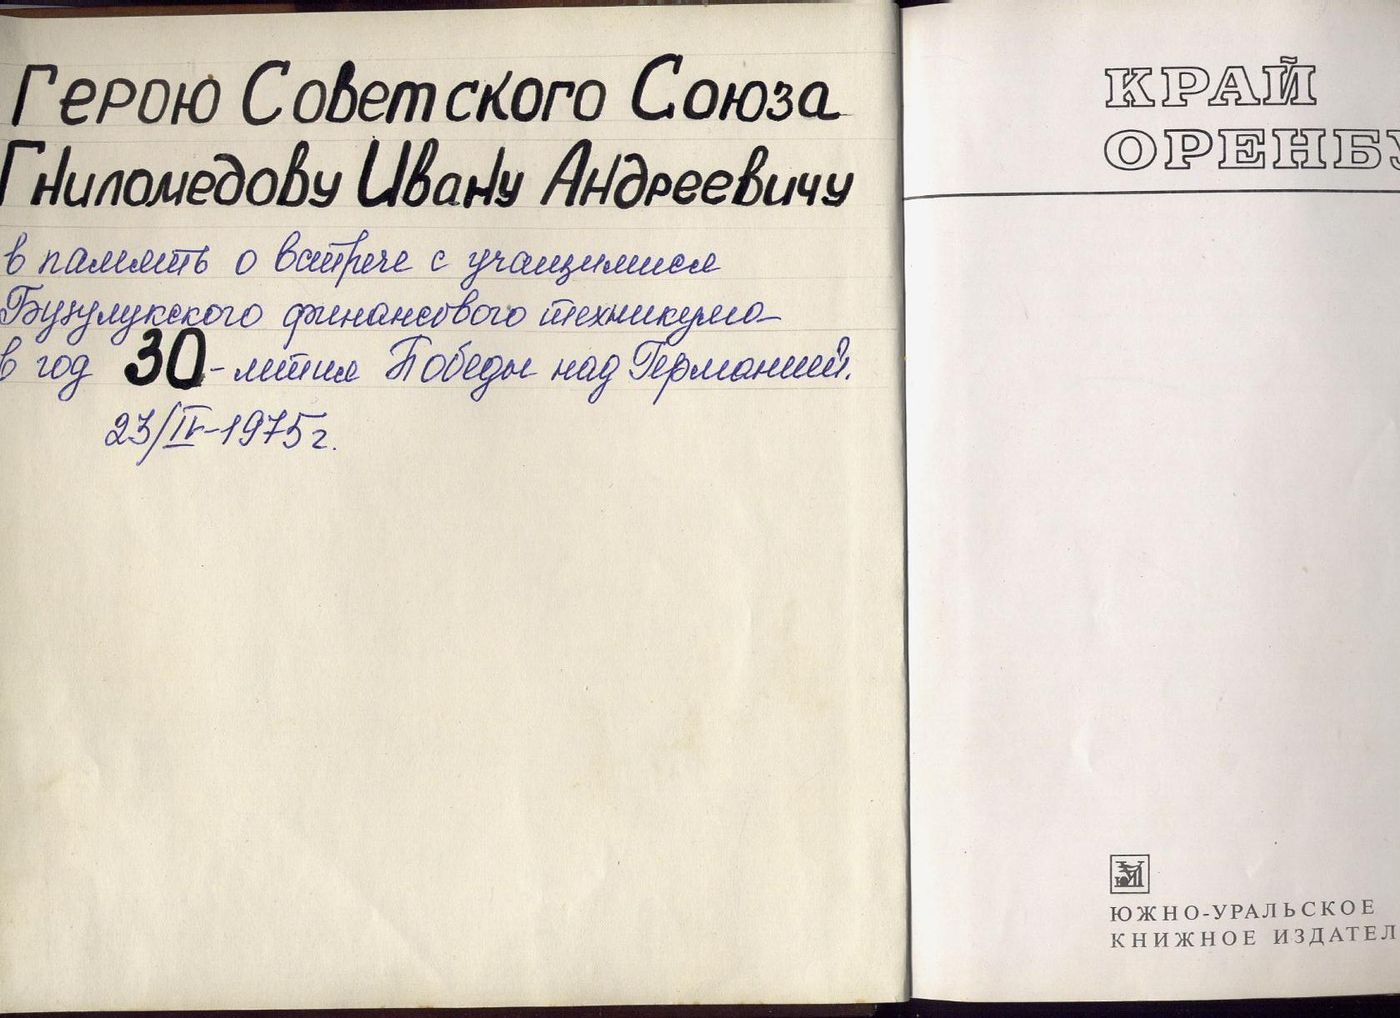 Герою Советского Союза
Гниломедову Ивану Андреевичу
в память о встрече с учащимися
Бузулукского финансового техникума
в год 30-летия Победы над Германией.
23/IV-1975г.
КРАЙ
ОРЕНБУ
ЮЖНО-УРАЛЬСКОЕ
КНИЖНОЕ ИЗДАТЕЛ